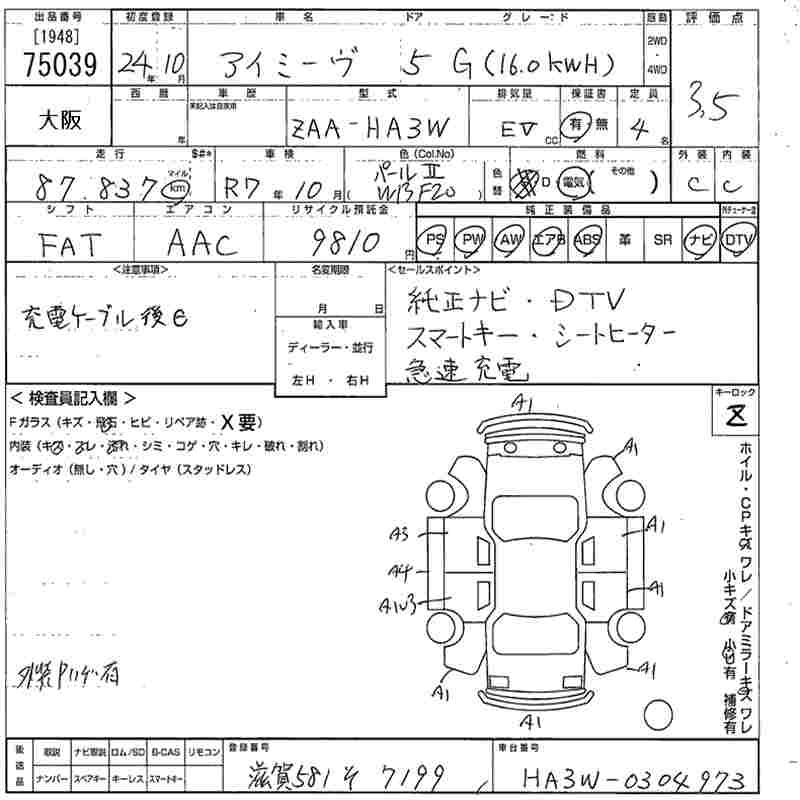 出品番号 初度登録 車名 ドア グレード 駆動 評価点
[1948]
75039 24年10月 アイミーヴ 5 G(16.0kWH) 2WD・4WD 3.5
大阪 西暦 年 車歴 未記入は自家用 型式 排気量 保証書 定員
ZAA-HA3W EV CC 有 無 4名
走行 $#* 車検 色(Col.No) 色替 燃料 外装 内装
87.837 マイル km R7年10月 (パールⅡ W13F20) D 電気 (その他 ) C C
シフト エアコン リサイクル預託金 純正装備品
FAT AAC 9810円 PS PW AW エアB ABS 革 SR ナビ DTV
<注意事項> 名変期限 <セールスポイント>
充電ケーブル後日
月 日
輸入車
ディーラー・並行
左H ・ 右H
純正ナビ・DTV
スマートキー・シートヒーター
急速充電
<検査員記入欄>
Fガラス(キズ・飛石・ヒビ・リペア跡・X要)
内装(キズ・スレ・汚れ・シミ・コゲ・穴・キレ・破れ・割れ)
オーディオ(無し・穴)/タイヤ(スタッドレス)
キーロック
Z
A1
A1
A3
A1
A4
A1
A1
A1
A1
ホイル・CPキズ ワレ/ドアミラーキズ ワレ
小キズ有 小凹有 補修有
後送品 取説 ナビ取説 ロム/SD B-CAS リモコン 登録番号 車台番号
ナンバー スペアキー キーレス スマートキー 滋賀581そ7199 HA3W-0304973